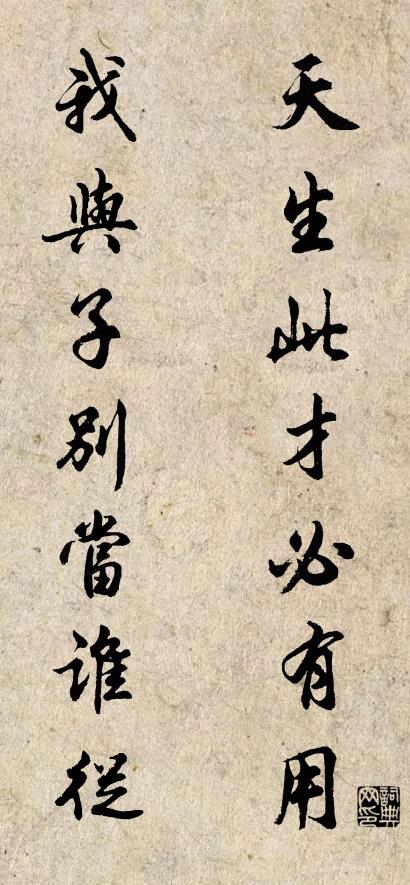 天生此才必有用
我與子別當誰從
詞典网印